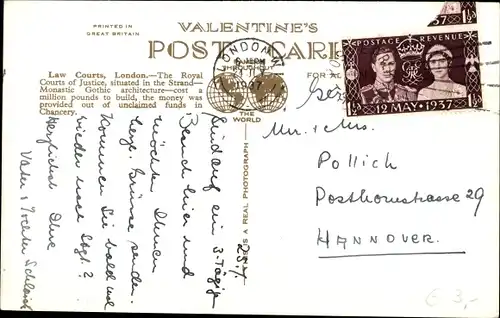 PRINTED IN
GREAT BRITAIN
VALENTINE'S
POST CARD
Law Courts, London.—The Royal
Courts of Justice, situated in the Strand—
Monastic Gothic architecture—cost a
million pounds to build, the money was
provided out of unclaimed funds in
Chancery.
LONDON
1937
THE
WORLD
FOR
POSTAGE REVENUE
1½D 12 MAY 1937 1½D
Sind auf ein 3-Tägigen
Besuch hier und
möchten Ihnen
herzl. Grüsse senden.
Kommen Sie bald mal
wieder nach
Herzlichst Ihre
Vater & Tochter
25/7
THIS IS A REAL PHOTOGRAPH
Mr. & Mrs.
Pollich
Posthornstrasse 29
HANNOVER.
€ 3,-